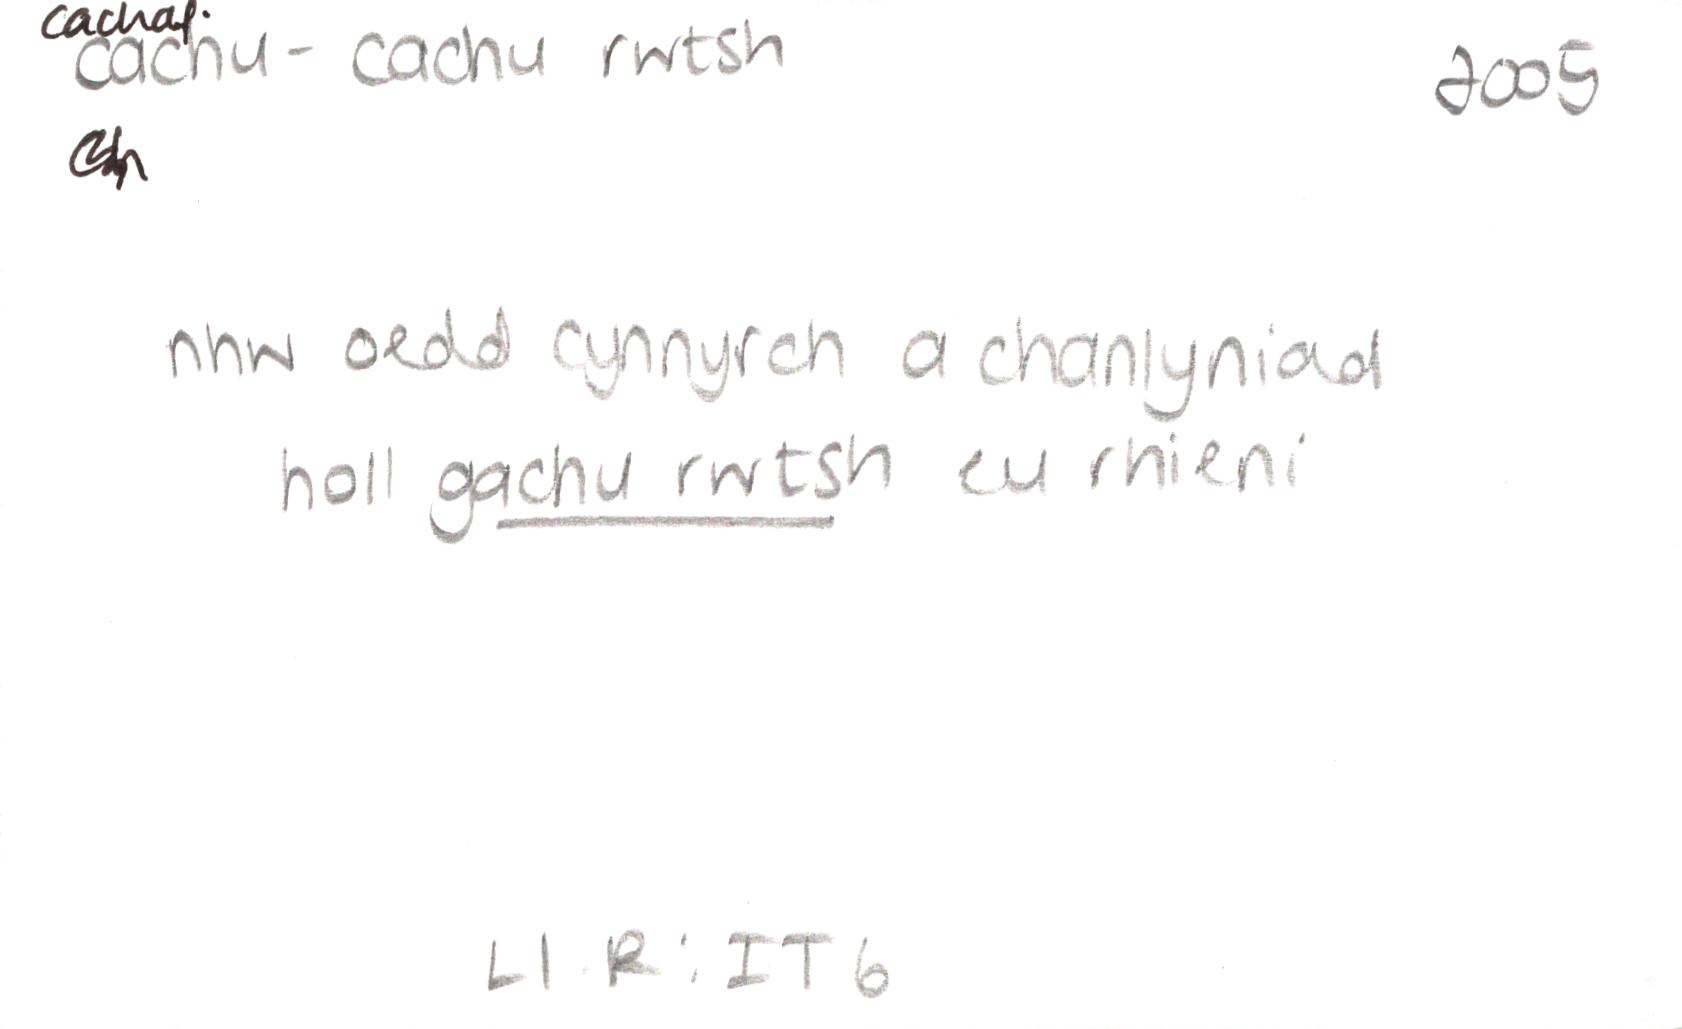 cachaf.
cachu - cachu rwtsh 2005
nhw oedd cynnyrch a chanlyniad
holl gachu rwtsh eu rhieni
Ll. R : IT 6